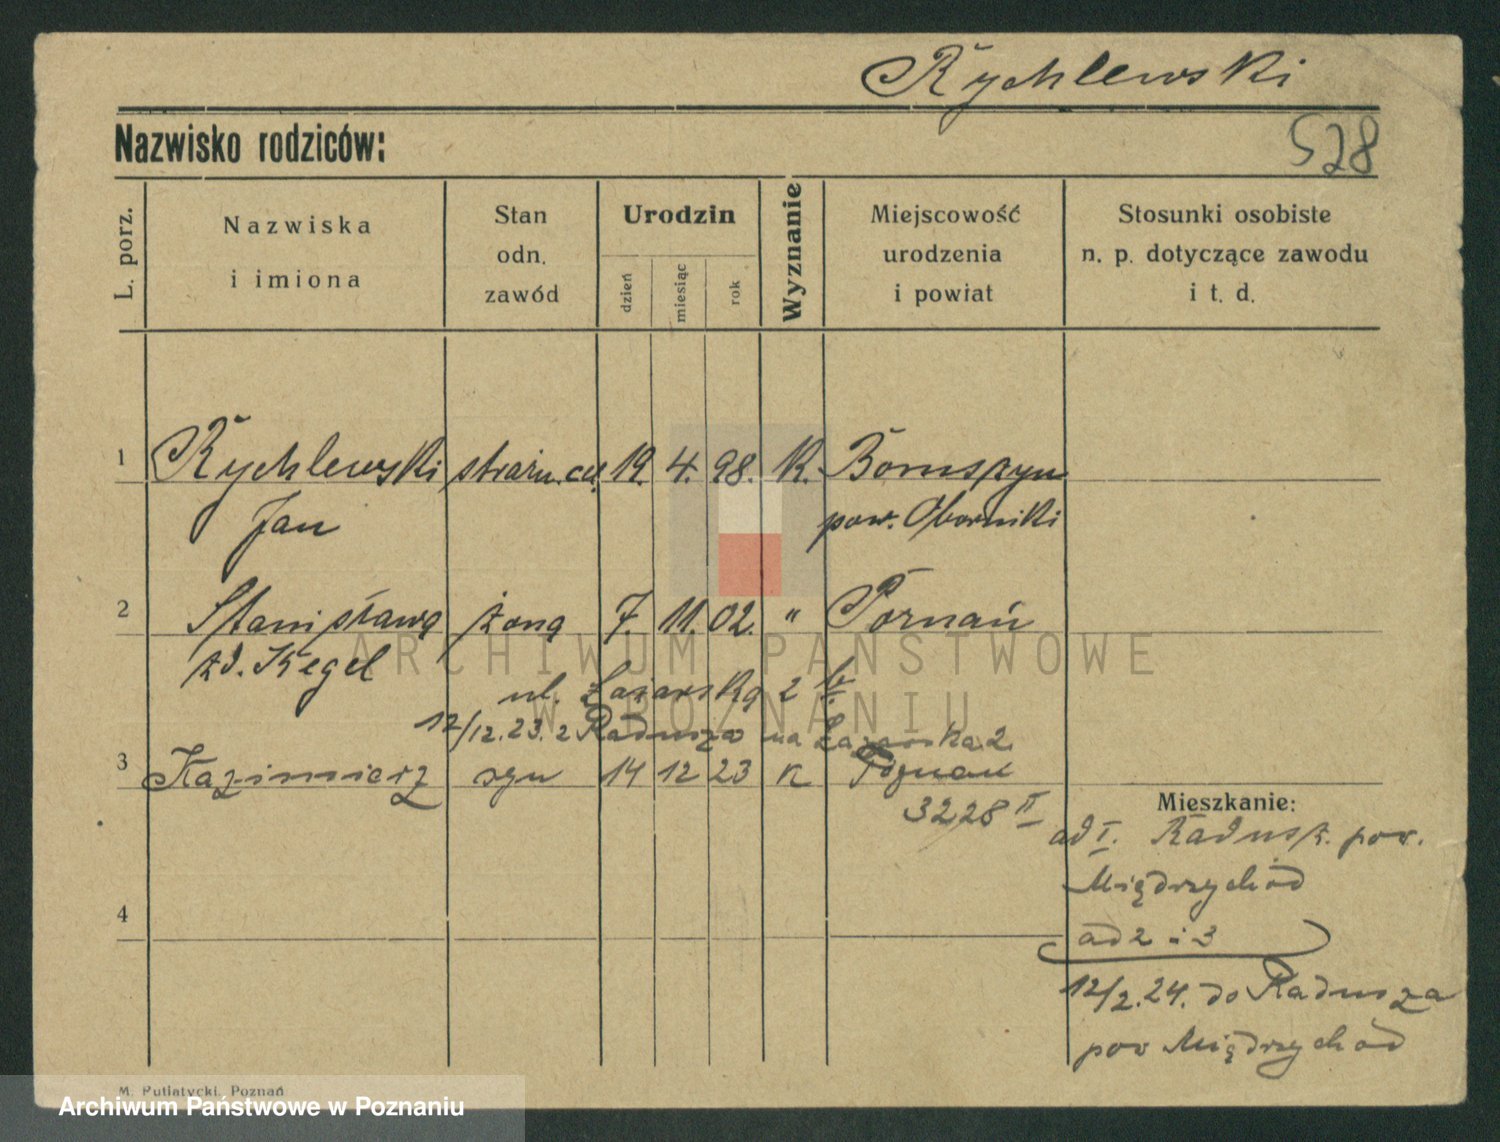 Rychlewski
Nazwisko rodziców:
528
L. porz.
Nazwiska
i imiona
Stan
odn.
zawód
Urodzin
dzień
miesiąc
rok
Wyznanie
Miejscowość
urodzenia
i powiat
Stosunki osobiste
n. p. dotyczące zawodu
i t. d.
1 Rychlewski strażn. cel. 19. 4. 98. K.
Jan pow. Oborniki
2 Stanisława żona 7. 11. 02. " Poznań
zd. Kegel
ul. Łazarska 2
12/12.23. z Radusza na Łazarska 2
3 Kazimierz syn 14 12 23 K Poznań
3228 II
Mieszkanie:
ad I. Radusz. pow.
Międzychód
4
ad 2 i 3
12/2.24. do Radusza
pow Międzychód
M. Putiatycki, Poznań
ARCHIWUM PAŃSTWOWE
W POZNANIU
Archiwum Państwowe w Poznaniu